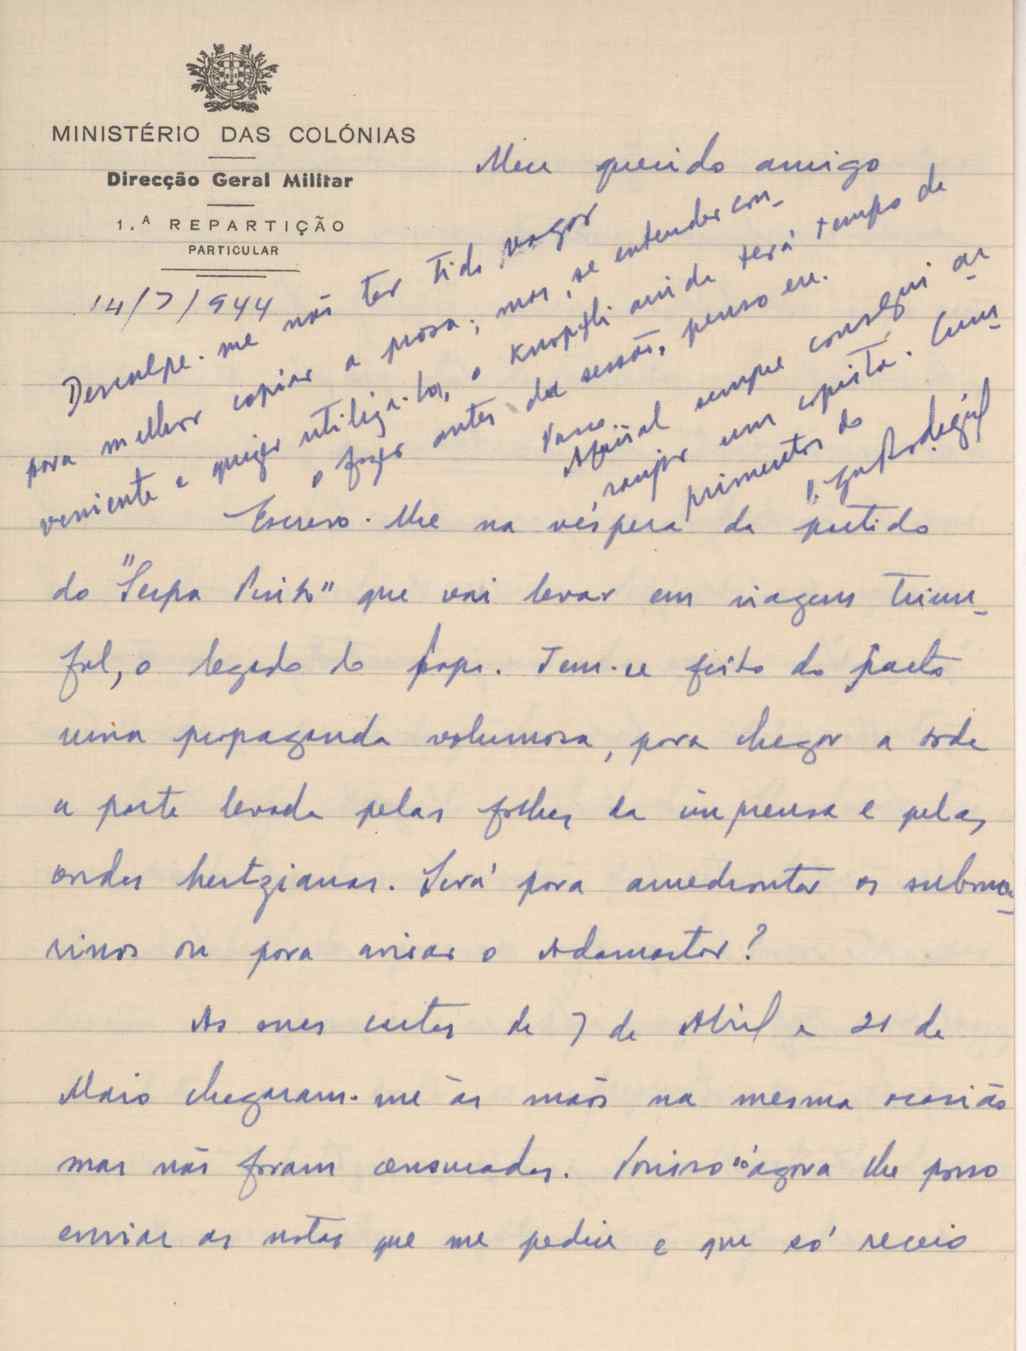 MINISTÉRIO DAS COLÓNIAS
Direcção Geral Militar
1.ª REPARTIÇÃO
PARTICULAR
14/7/944
Meu querido amigo
Desculpe-me não ter tido vagar
para melhor copiar a prosa; mas, se entender con-
veniente e quizer utilizá-la, o Knopfli ainda terá tempo de
o fazer antes da sessão, penso eu.
Afinal sempre consegui ar-
ranjar um copista. Cum-
primentos do
Escrevo-lhe na véspera da partida
do "Serpa Pinto" que vai levar em viagem triun-
fal, o legado do papa. Tem-se feito do facto
uma propaganda volumosa, para chegar a toda
a parte levada pelas folhas da imprensa e pelas
ondas hertzianas. Será para amedrontar os subma-
rinos ou para avisar o Adamastor?
As suas cartas de 7 de Abril e 21 de
Maio chegaram-me às mãos na mesma ocasião
mas não foram censuradas. só agora lhe posso
enviar as notas que me pediu e que só receio